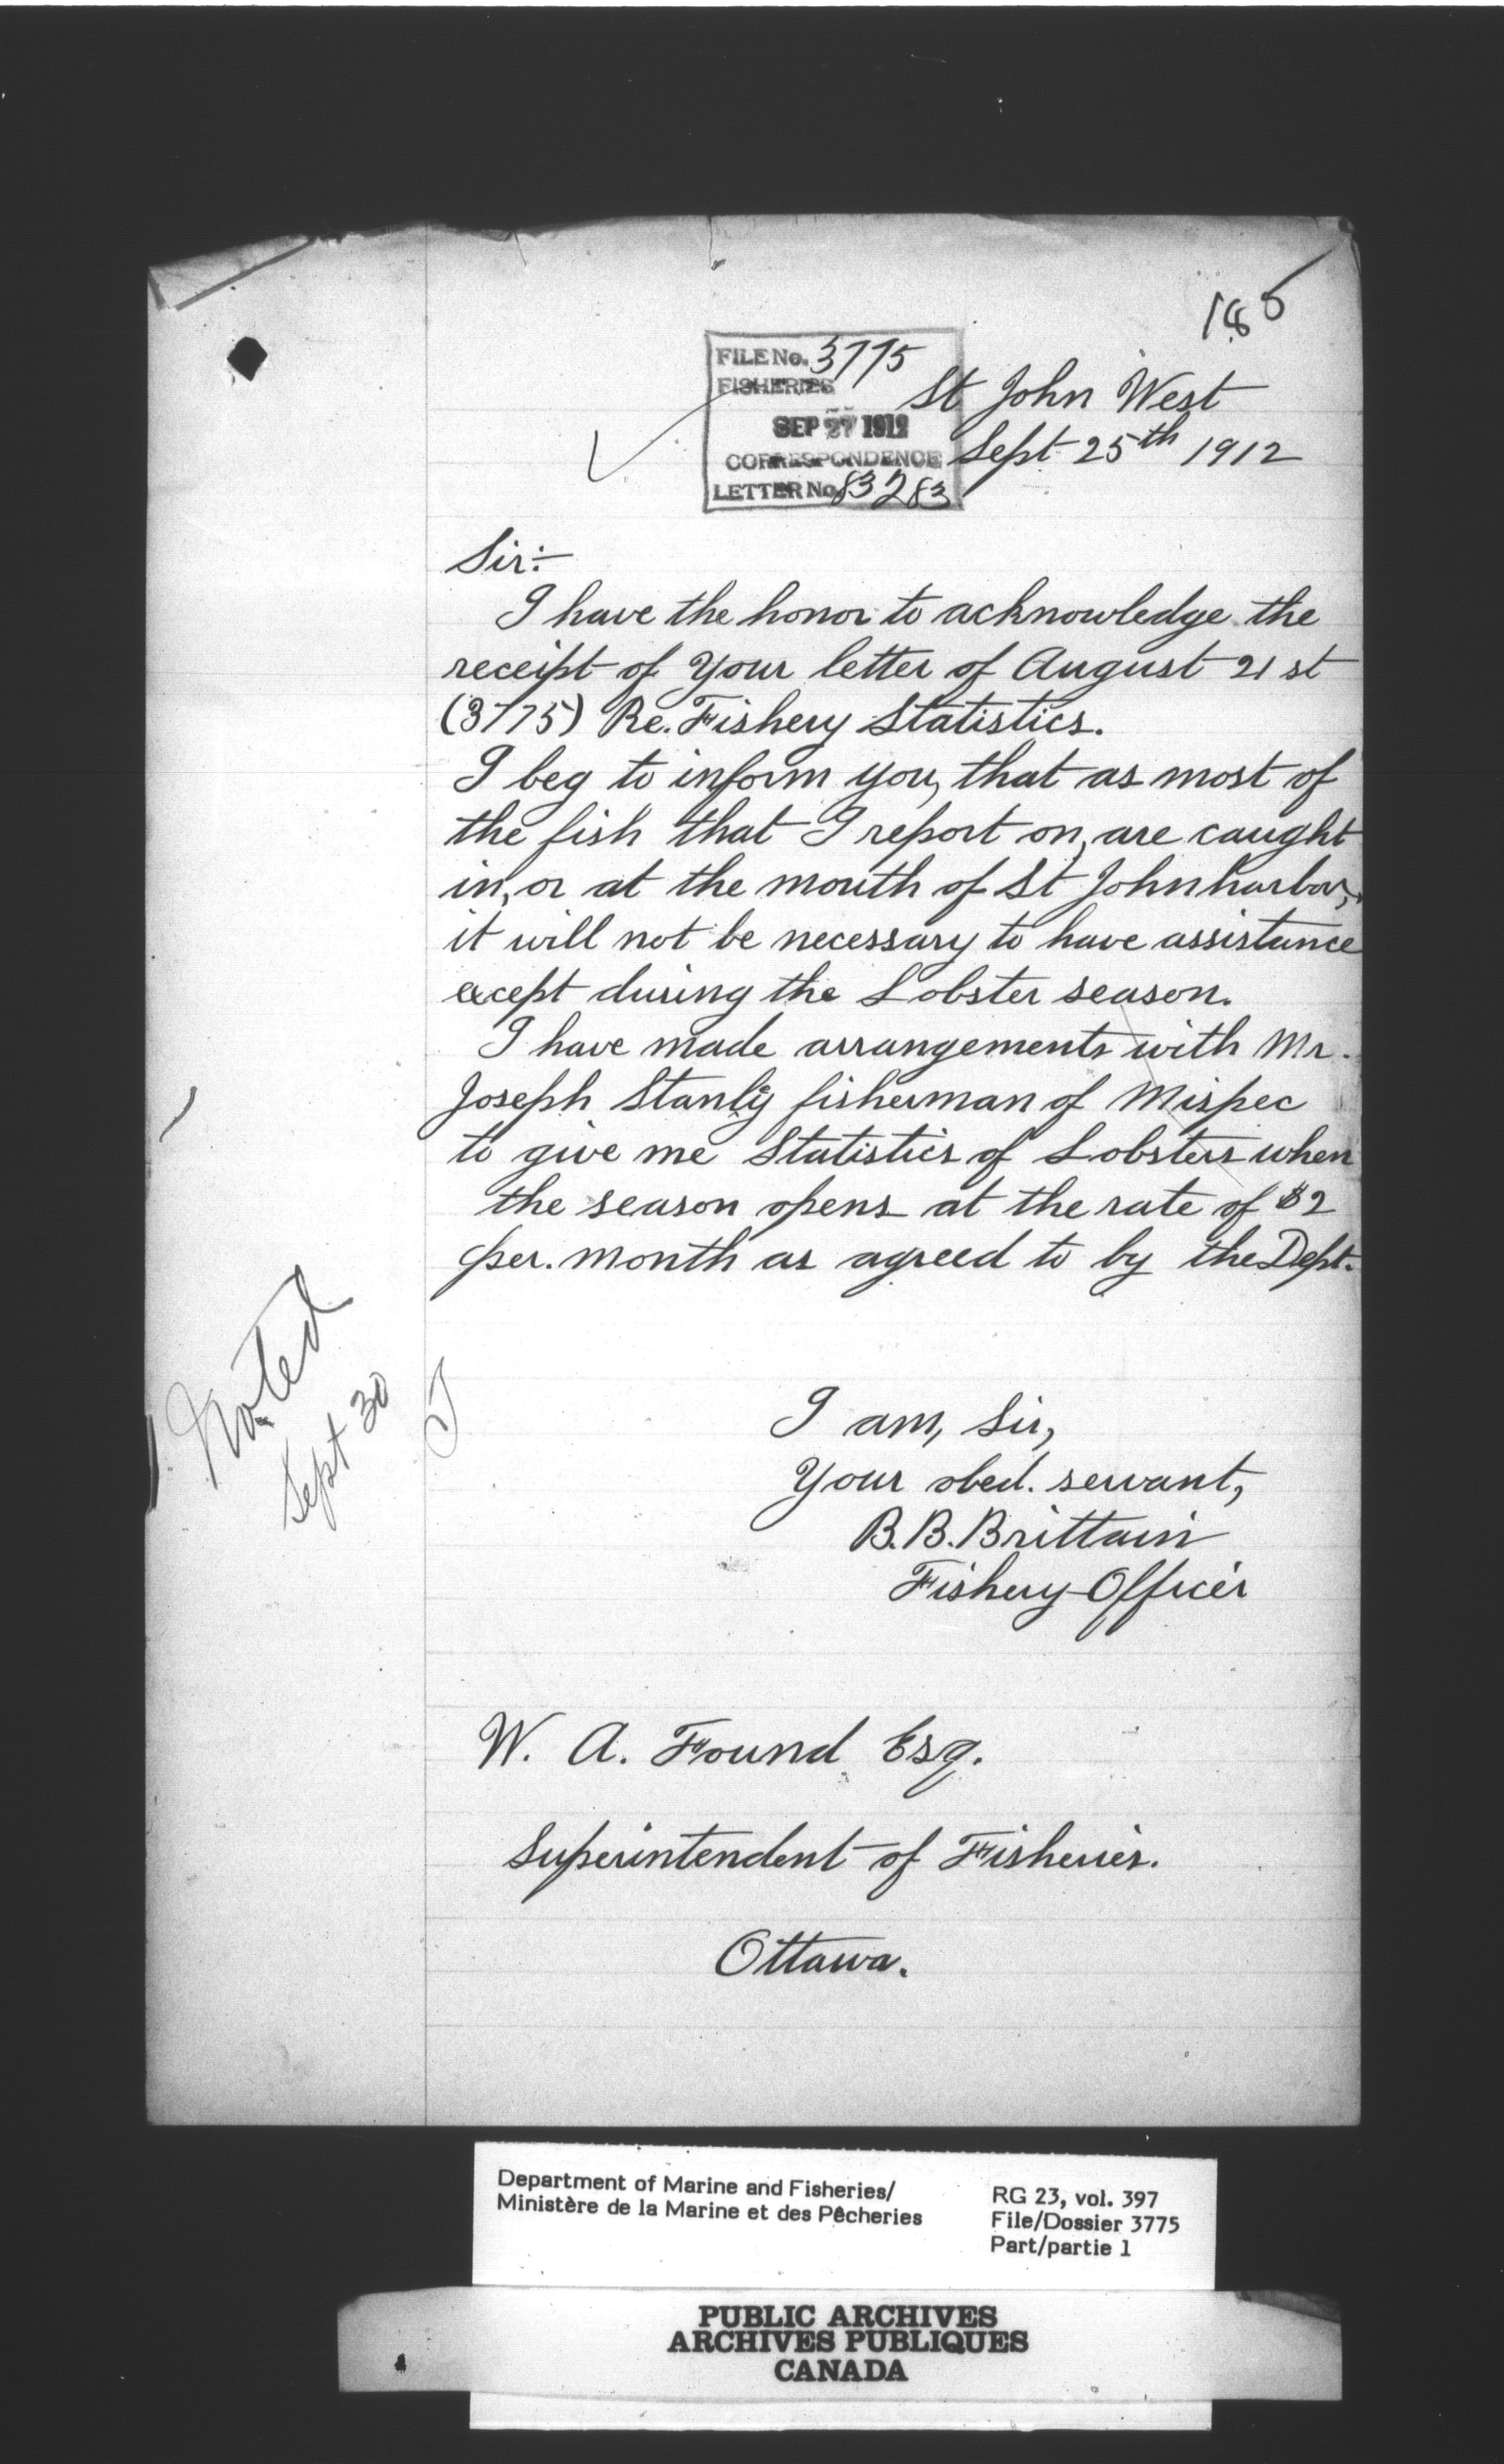 185
FILE No. 3775
FISHERIES
SEP 27 1912
CORRESPONDENCE
LETTER No. 83283
St John West
Sept 25th 1912
Sir:-
I have the honor to acknowledge the
receipt of your letter of August 21st
(3775) Re. Fishery Statistics.
I beg to inform you, that as most of
the fish that I report on, are caught
in, or at the mouth of St John harbor,
it will not be necessary to have assistance
except during the Lobster season.
I have made arrangements with Mr.
Joseph Stanly fisherman of Mispec
to give me Statistics of Lobsters when
the season opens at the rate of $2
per. month as agreed to by the Dept.
Noted
Sept 30
I am, Sir,
Your obed. servant,
B.B. Brittain
Fishery Officer
W. A. Found Esq.
Superintendent of Fisheries.
Ottawa.
Department of Marine and Fisheries/
Ministère de la Marine et des Pêcheries
RG 23, vol. 397
File/Dossier 3775
Part/partie 1
PUBLIC ARCHIVES
ARCHIVES PUBLIQUES
CANADA